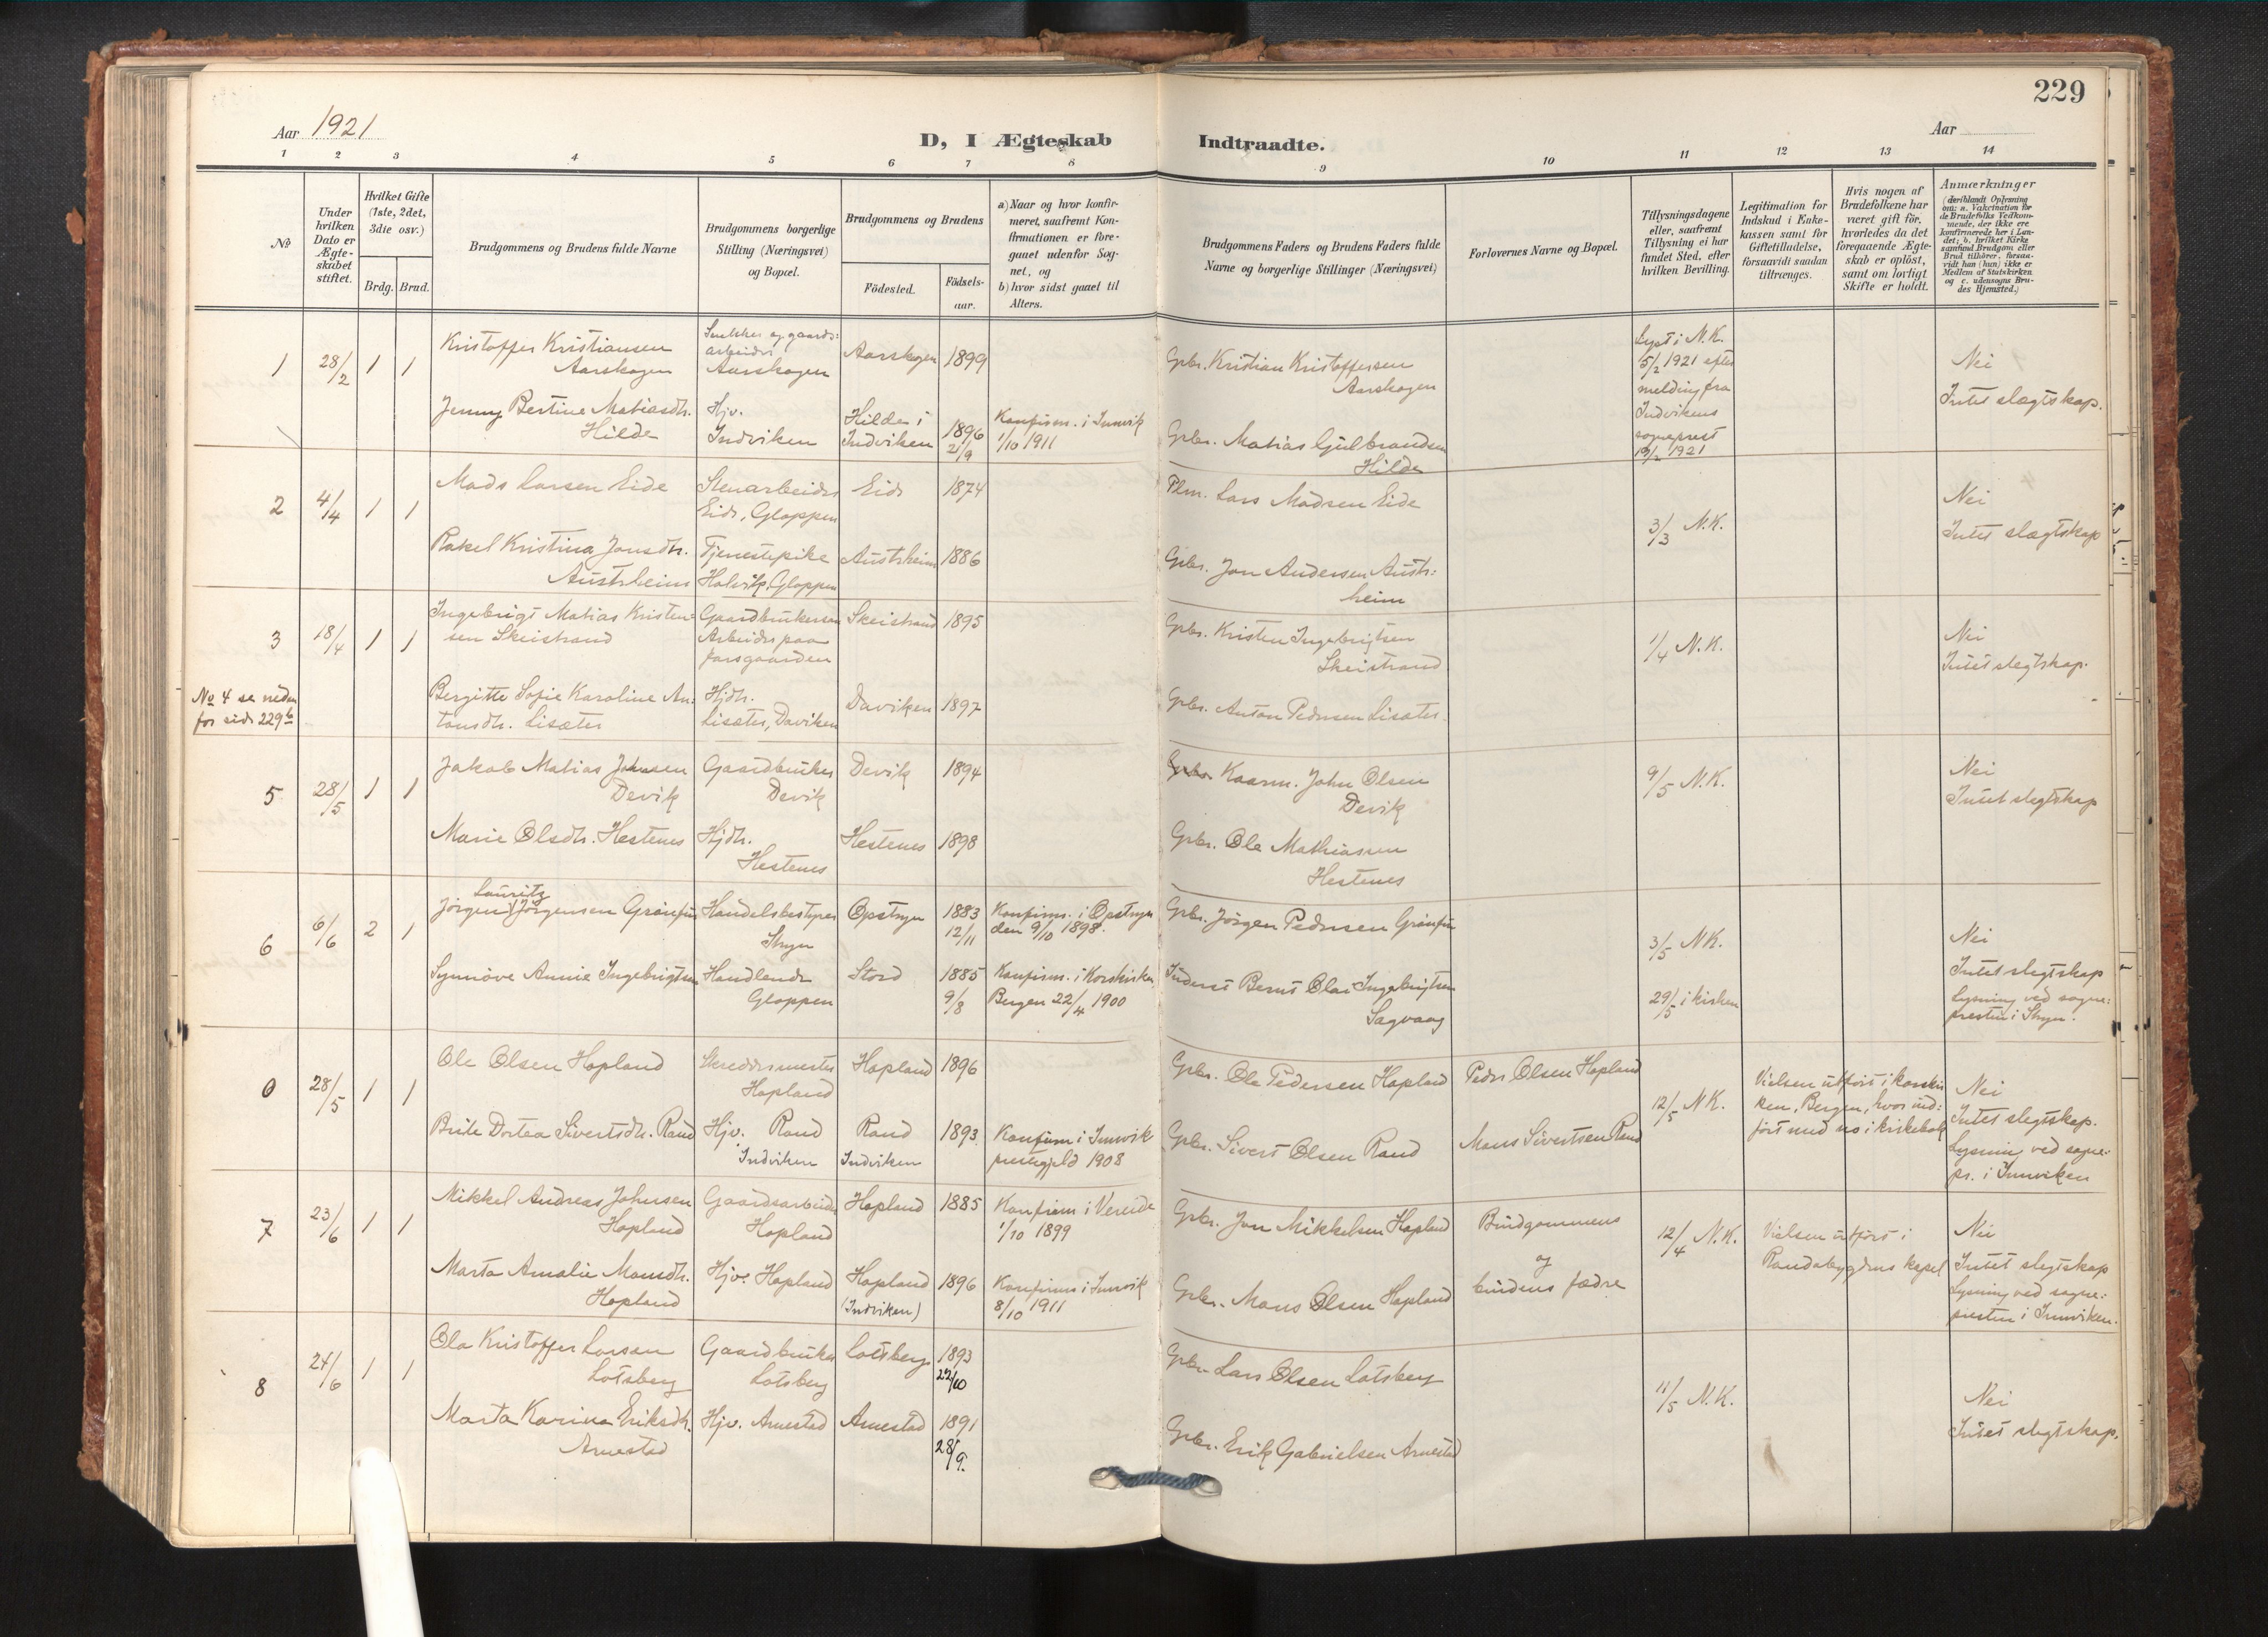 229
Aar 1921
D, I Ægteskab Indtraadte.
Aar
1 2 3 4 5 6 7 8 9 10 11 12 13 14
No
Under hvilken Dato er Ægteskabet stiftet.
Hvilket Gifte (1ste, 2det, 3die osv.)
Brdg. Brud.
Brudgommens og Brudens fulde Navne
Brudgommens borgerlige Stilling (Næringsvei) og Bopæl.
Brudgommens og Brudens
Födested.
Födsels-aar.
a) Naar og hvor konfir-
meret, saafremt Kon-
firmationen er fore-
gaaet udenfor Sog-
net, og
b) hvor sidst gaaet til
Alters.
Brudgommens Faders og Brudens Faders fulde
Navne og borgerlige Stillinger (Næringsvei)
Forlovernes Navne og Bopæl.
Tillysningsdagene
eller, saafremt
Tillysning ei har
fundet Sted, efter
hvilken Bevilling.
Legitimation for
Indskud i Enke-
kassen samt for
Giftetilladelse,
forsaavidt saadan
tiltrænges.
Hvis nogen af
Brudefolkene har
været gift för,
hvorledes da det
foregaaende Ægte-
skab er oplöst,
samt om lovligt
Skifte er holdt.
Anmærkninger
(deriblandt Oplysning
om: a. Vakcination for
de Brudefolks Vedkom-
mende, der ikke ere
konfirmerede her i Lan-
det; b. hvilket Kirke
samfund Brudgom eller
Brud tilhörer, forsaa-
vidt han (hun) ikke er
Medlem af Statskirken
og c. udensogns Bru-
des Hjemsted.)
1 28/2 1 1
Kristoffer Kristiansen
Aarskogen
Snekker og gaards-
arbeider
Aarskogen
Aarskogen 1899
Gbr. Kristian Kristoffersen
Aarskogen
Lyst i N.K.
15/2 1921 efter
melding fra
Indvikens
sogneprest
1921
Nei
Intet slægtskap.
Jenny Bertine Matiasdtr.
Hilde
Hjv.
Indviken
Hilde i
Indviken
1896
21/9
Konfirm. i Innvik
1/10 1911
Gbr. Matias Gulbrandsen
Hilde
2 4/4 1 1
Mads Larsen Eide
Stenarbeider
Eide, Gloppen
Eide 1874
Plm. Lars Madsen Eide
3/3 N.K.
Nei
Intet slægtskap
Rakel Kristina Jonsdtr.
Austrheim
Tjenestepike
Holvik, Gloppen
Austrheim 1886
Gbr. Jon Andersen Austr-
heim
3 18/4 1 1
Ingebrigt Matias Kristen-
sen Skeistrand
Gaardbrukersøn
Arbeider paa
farsgaarden
Skeistrand 1895
Gbr. Kristen Ingebrigtsen
Skeistrand
1/4 N.K.
Nei
Intet slegtskap.
No 4 se neden
for side 229b
Bergitte Sofie Karoline An-
tonsdtr. Lisæter
Hjdtr.
Lisæter, Daviken
Daviken 1897
Gbr. Anton Pedersen Lisæter.
5 28/5 1 1
Jakob Matias Johnsen
Devik
Gaardbruker
Devik
Devik 1894
Kaarm. John Olsen
Devik
9/5 N.K.
Nei
Intet slegtskap
Marie Olsdtr. Hestenes
Hjdtr.
Hestenes
Hestenes 1898
Gbr. Ole Mathiassen
Hestenes
6 6/6 2 1
Lauritz
Jörgen Jörgensen Grönfur
Handelsbestyrer
Stryn
Opstryn
1883
12/11
Konfirm. i Opstryn
den 9/10 1898.
Gbr. Jörgen Pedersen Grönfur
3/5 N.K.
Nei
Intet slegtskap
Lysning ved sogne-
presten i Stryn.
Synnöve Annie Ingebrigtsen
Handlende
Gloppen
Stord
1885
9/8
Konfirm. i Korskirken
Bergen 22/4 1900
Inderst Bernt Olai Ingebrigtsen
Sagvaag
29/5 i kirken
0 28/5 1 1
Ole Olsen Hopland
Skreddermester
Hopland
Hopland 1896
Gbr. Ole Pedersen Hopland
Peder Olsen Hopland
12/5 N.K.
Vielsen utfört i korskir-
ken, Bergen, hvor ind-
fört med no i kirkebok
Nei
Intet slegtskap.
Lysning ved sogne-
pr. i Innviken
Brite Dortea Sivertsdtr. Rand
Hjv. Rand
Indviken
Rand
Indviken
1893.
Konfirm i Innvik
prestegjeld 1908
Gbr. Sivert Olsen Rand
Mons Sivertsen Rand
7 23/6 1 1
Mikkel Andreas Johnsen
Hopland
Gaardsarbeider
Hopland
Hopland 1885
Konfirm i Vereide
1/10 1899
Gbr. Jon Mikkelsen Hopland
Brudgommens
og
brudens fædre
12/4 N.K.
Vielsen utfört i
Randabygdens kapel
Nei
Intet slegtskap
Lysning ved sogne-
presten i Innviken.
Marta Amalie Monsdtr.
Hopland
Hjv. Hopland
Hopland
(Indviken)
1896
Konfirm i Innvik
8/10 1911
Gbr. Mons Olsen Hopland
8 24/6 1 1
Ola Kristoffer Larsen
Lotsberg
Gaardbruker
Lotsberg
Lotsberg
1893
22/10
Gbr. Lars Olsen Lotsberg
11/5 N.K.
Nei
Intet slegtskap.
Marta Karina Eriksdtr.
Arnestad
Hjv. Arnestad
Arnestad
1891
28/9.
Gbr. Erik Gabrielsen Arnestad